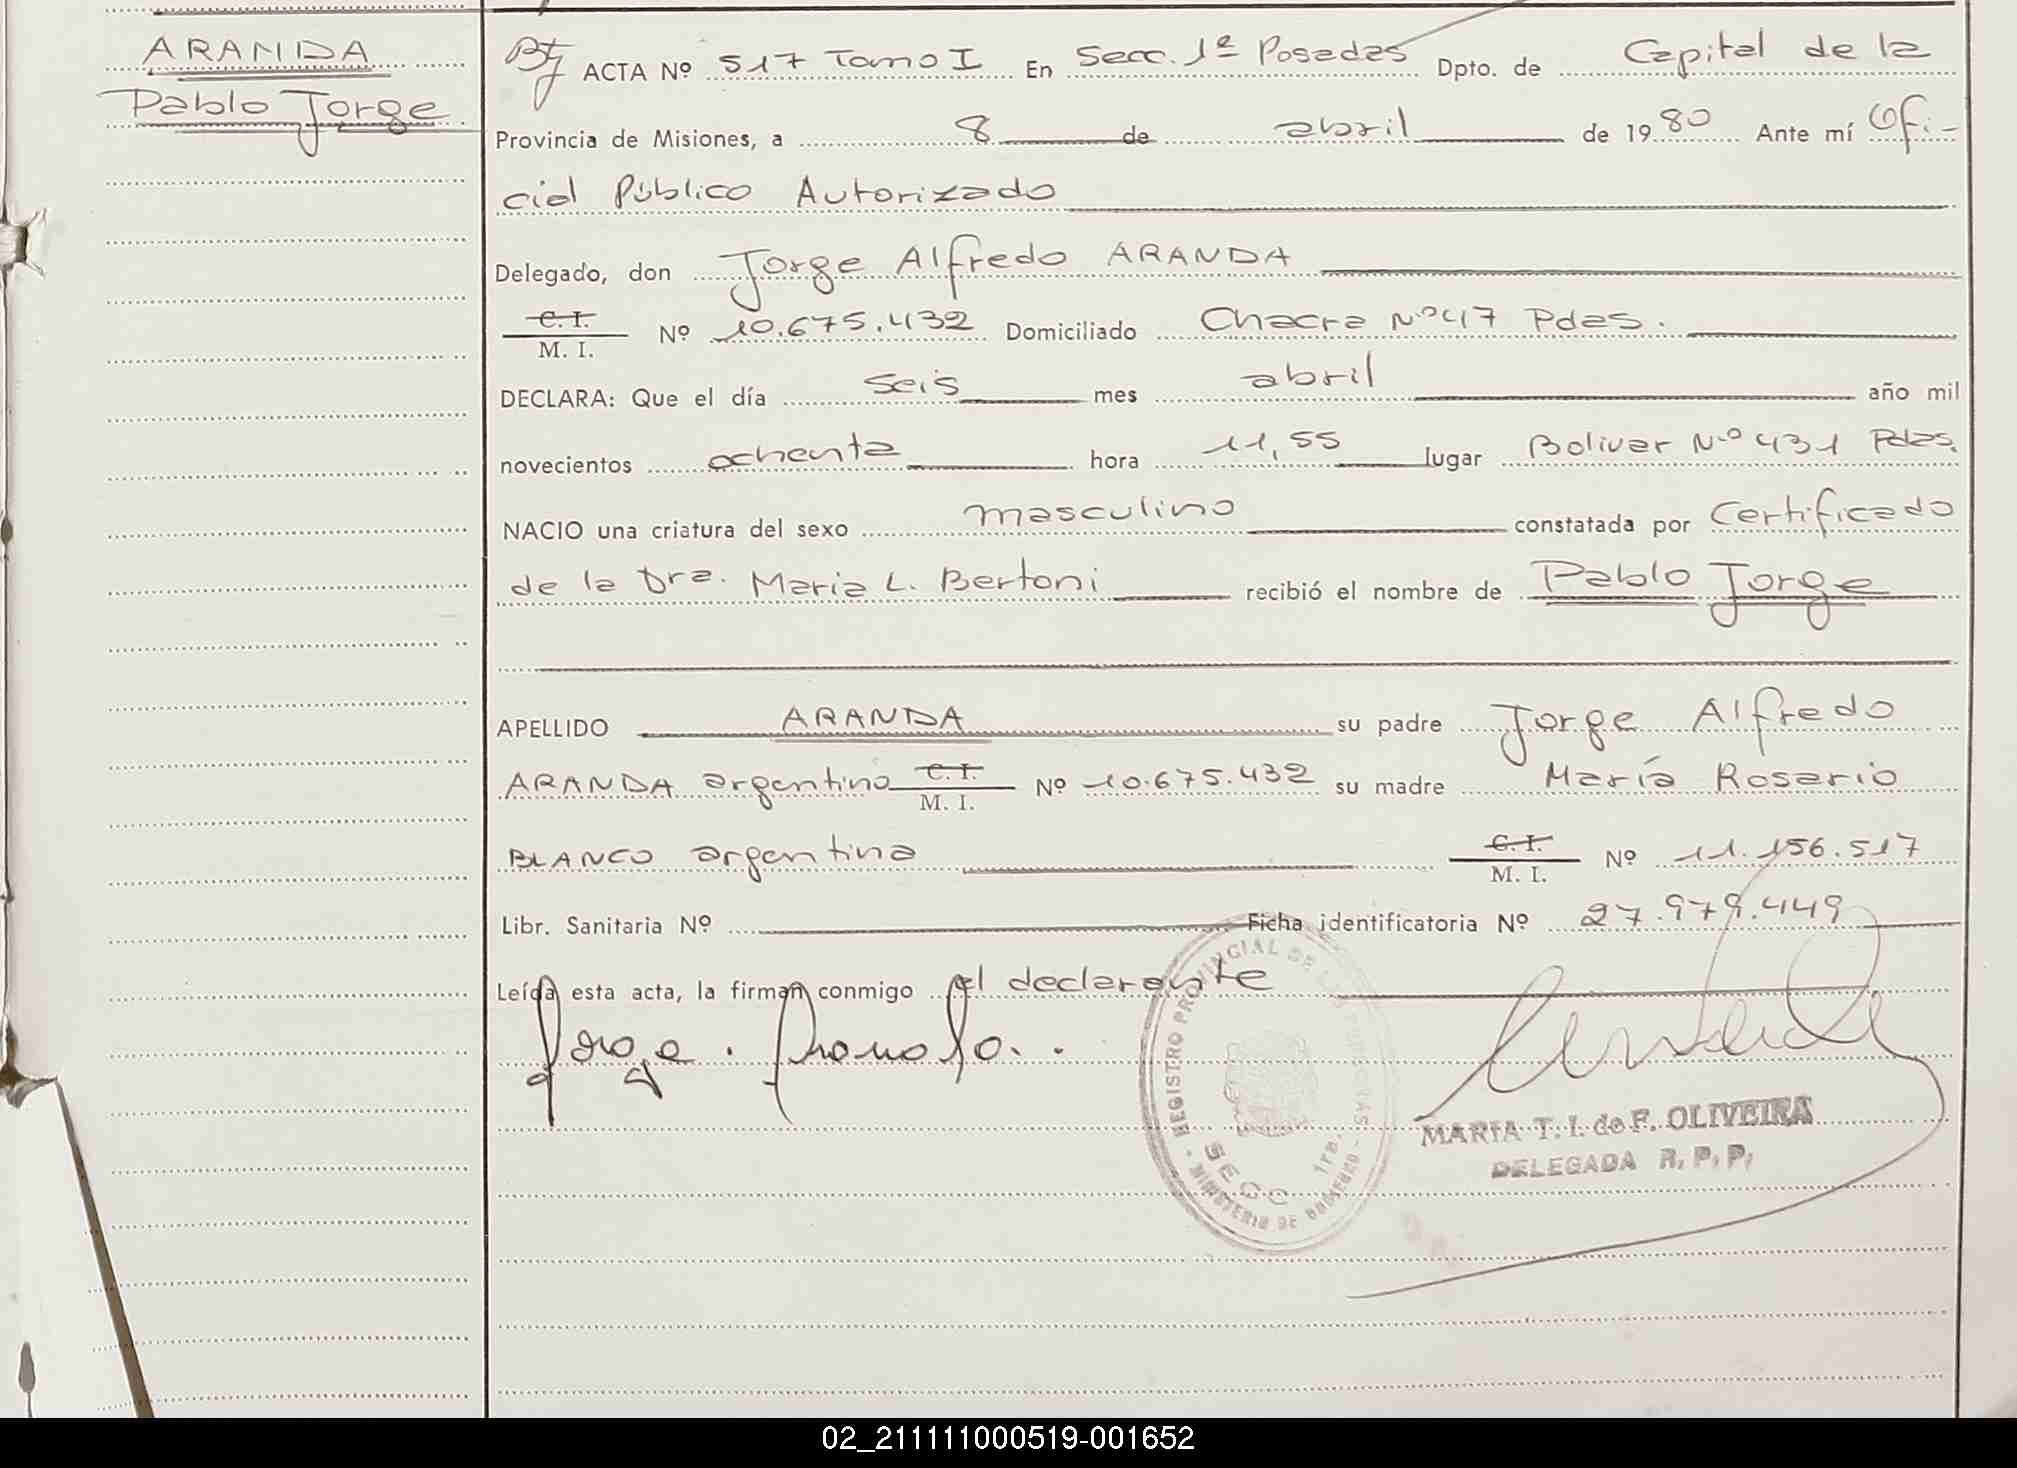 ARANDA
Pablo Jorge
ACTA Nº 517 Tomo I En Secc. 1ª Posadas Dpto. de Capital de la
Provincia de Misiones, a 8 de abril de 1980 Ante mí Ofi-
cial Público Autorizado
Delegado, don Jorge Alfredo ARANDA
C. I.
M. I. Nº 10.675.432 Domiciliado Chacra Nº 47 Pdas.
DECLARA: Que el día seis mes abril año mil
novecientos ochenta hora 11,55 lugar Bolivar Nº 431 Pdas.
NACIO una criatura del sexo masculino constatada por Certificado
de la Dra. Maria L. Bertoni recibió el nombre de Pablo Jorge
APELLIDO ARANDA su padre Jorge Alfredo
ARANDA argentino C. I.
M. I. Nº 10.675.432 su madre María Rosario
BLANCO argentina C. I.
M. I. Nº 11.156.517
Libr. Sanitaria Nº Ficha identificatoria Nº 27.979.449
Leída esta acta, la firman conmigo el declarante
Jorge
REGISTRO PROVINCIAL DE LAS PERSONAS
SECC 1ra.
MINISTERIO DE GOBIERNO
MARIA T. I. de F. OLIVEIRA
DELEGADA R. P. P.
02_211111000519-001652